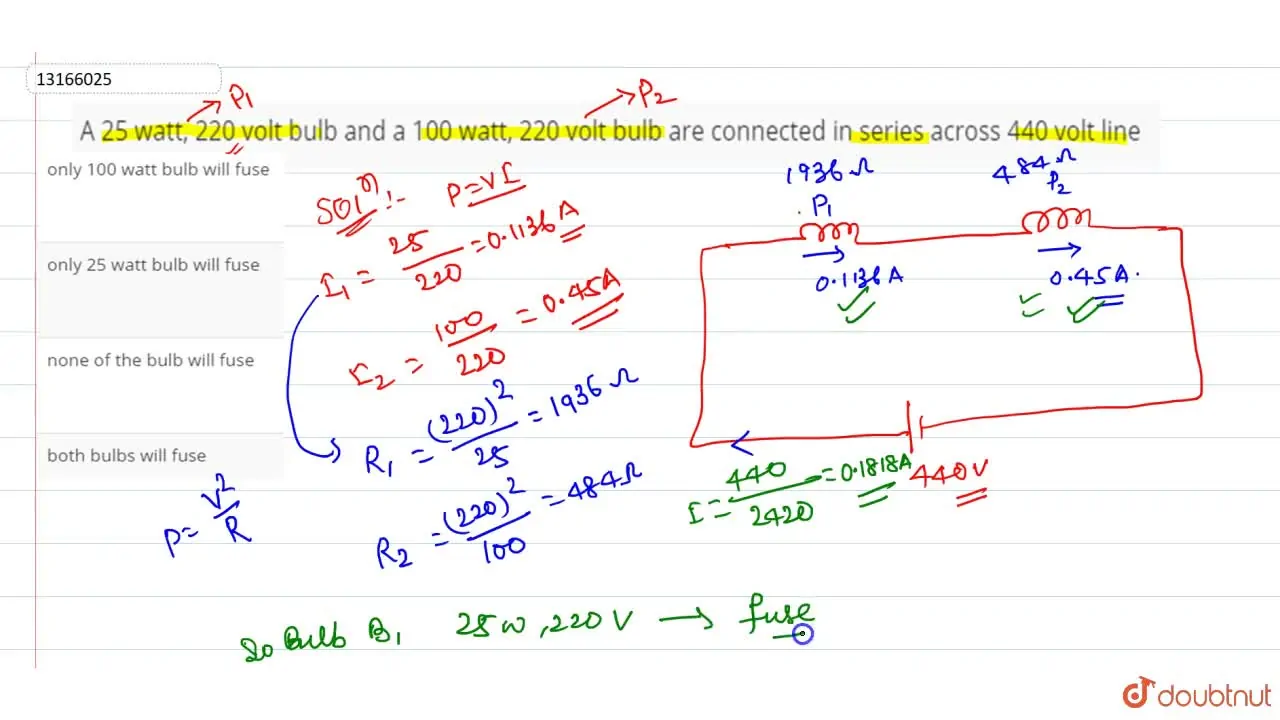 13166025
P1
P2
A 25 watt, 220 volt bulb and a 100 watt, 220 volt bulb are connected in series across 440 volt line
only 100 watt bulb will fuse
only 25 watt bulb will fuse
none of the bulb will fuse
both bulbs will fuse
Solⁿ :-
P=VI
I1 = 25/220 = 0.1136 A
I2 = 100/220 = 0.45A
R1 = (220)²/25 = 1936 Ω
R2 = (220)²/100 = 484Ω
P = V²/R
1936 Ω
P1
0.1136 A
484 Ω
P2
0.45 A.
I = 440/2420 = 0.1818A
440 V
So Bulb B1 25 W, 220 V → fuse
doubtnut